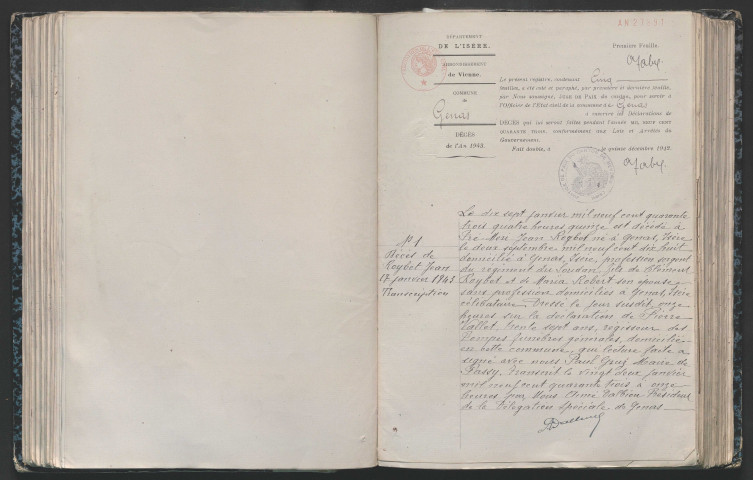 DÉPARTEMENT
DE L'ISÈRE.
ARRONDISSEMENT
de Vienne.
COMMUNE
de
Genas
DÉCÈS
de l'An 1943.
Première Feuille.
Le présent registre, contenant Cinq
feuilles, a été coté et paraphé, par première et dernière feuille,
par Nous soussigné, JUGE DE PAIX du canton, pour servir à
l'Officier de l'Etat civil de la commune de Genas
à inscrire les Déclarations de
DÉCÈS qui lui seront faites pendant l'année MIL NEUF CENT
QUARANTE TROIS, conformément aux Lois et Arrêtés du
Gouvernement.
Fait double, à
le quinze décembre 1942.
N° 1
Décès de
Reybot Jean
17 janvier 1943
Transcription
Le dix sept janvier mil neuf cent quarante
trois quatre heures quinze est décédé à
Jean Reybot né à Genas, Isère
le deux septembre mil neuf cent dix huit
domicilié à Genas, Isère, profession sergent
du régiment du fils de Clément
Reybot et de Maria Robert son épouse
sans profession domiciliés à Genas, Isère
célibataire. Dressé le jour susdit, onze
heures sur la déclaration de Pierre
Vallet, trente sept ans, régisseur des
Pompes funèbres générales, domicilié
en cette commune, qui lecture faite a
signé avec nous Paul Maire de
Passy. Transcrit le vingt deux janvier
mil neuf cent quarante trois à onze
heures par Nous Président
de la Délégation Spéciale de Genas